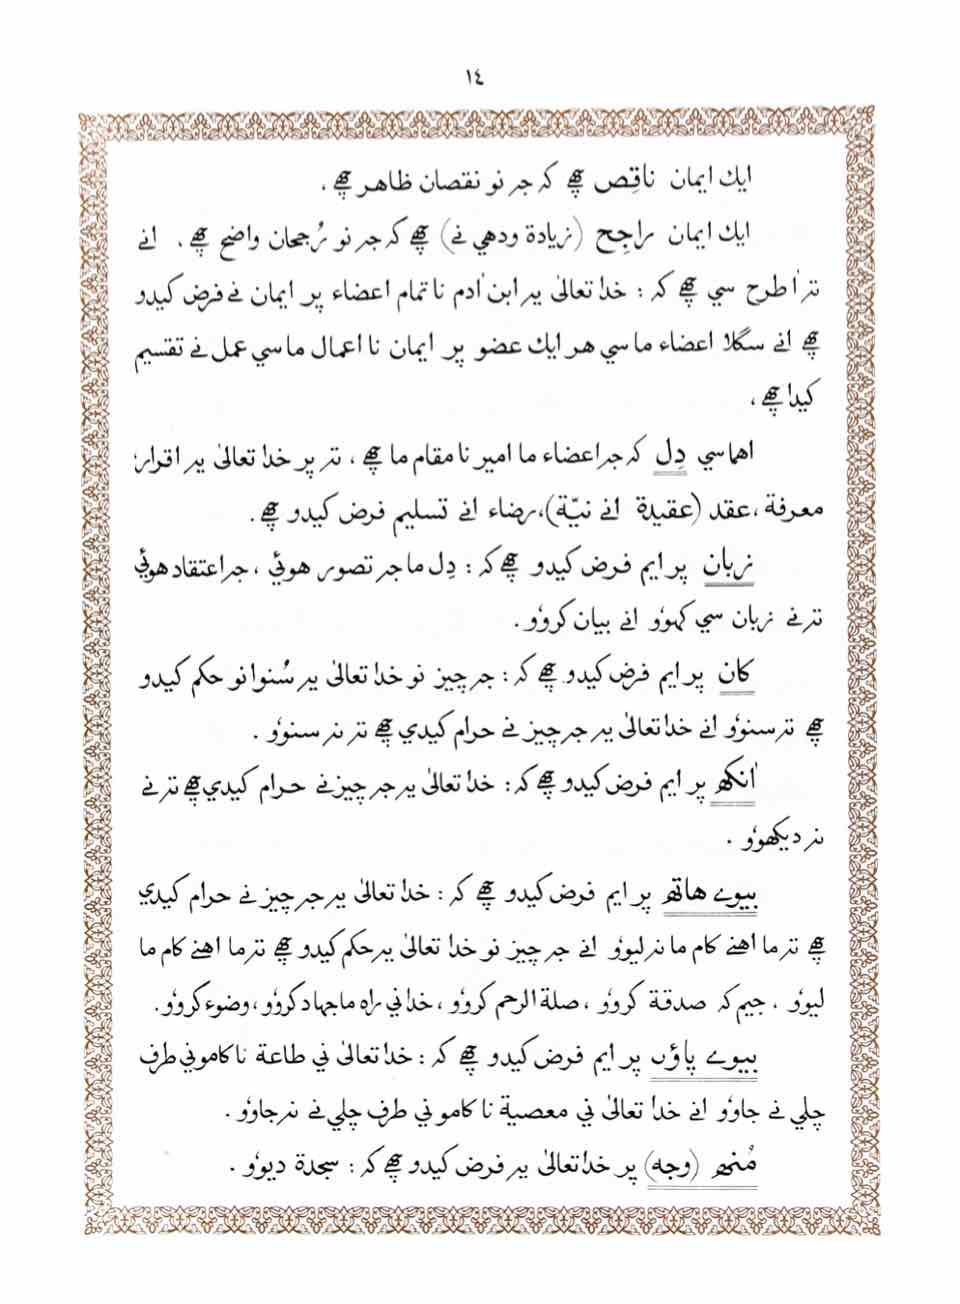 ١٤
ايك ايمان ناقِص چھے کہ جہ نو نقصان ظاهر چھے،
ايك ايمان راجِح (زيادة ودهي نے) چھے کہ جہ نو رُجحان واضح چھے. انے
تہ اْ طرح سي چھے کہ: خدا تعالىٰ يہ ابن اْدم نا تمام اعضاء پر ايمان نے فرض كيدو
چھے انے سگلا اعضاء ما سي هر ايك عضو پر ايمان نا اعمال ما سي عمل نے تقسيم
كيدا چھے،
اهما سي دِل کہ جہ اعضاء ما امير نا مقام ما چھے، تہ پر خدا تعالىٰ يہ اقرار،
معرفة، عقد (عقيدة انے نيّة)، رضاء انے تسليم فرض كيدو چھے.
زبان پر ايم فرض كيدو چھے کہ: دِل ما جہ تصور هوئي، جہ اعتقاد هوئي
تہ نے زبان سي كهوؤ انے بيان كروؤ.
كان پر ايم فرض كيدو چھے کہ: جہ چيز نو خدا تعالىٰ يہ سُنوا نو حكم كيدو
چھے تہ سنوؤ انے خدا تعالىٰ يہ جہ چيز نے حرام كيدي چھے تہ نہ سنوؤ.
اْنكھ پر ايم فرض كيدو چھے کہ: خدا تعالىٰ يہ جہ چيز نے حرام كيدي چھے تہ نے
نہ ديكھوؤ.
بيوے هاتھ پر ايم فرض كيدو چھے کہ: خدا تعالىٰ يہ جہ چيز نے حرام كيدي
چھے تہ ما اهنے كام ما نہ ليوؤ انے جہ چيز نو خدا تعالىٰ يہ حكم كيدو چھے تہ ما اهنے كام ما
ليوؤ. جيم کہ صدقة كروؤ، صلة الرحم كروؤ، خدا ني راه ما جهاد كروؤ، وضوء كروؤ.
بيوے پاؤں پر ايم فرض كيدو چھے کہ: خدا تعالىٰ ني طاعة نا كامو ني طرف
چلي نے جاوؤ انے خدا تعالىٰ ني معصية نا كامو ني طرف چلي نے نہ جاوؤ.
مُنھ (وجه) پر خدا تعالىٰ يہ فرض كيدو چھے کہ: سجدة ديوؤ.